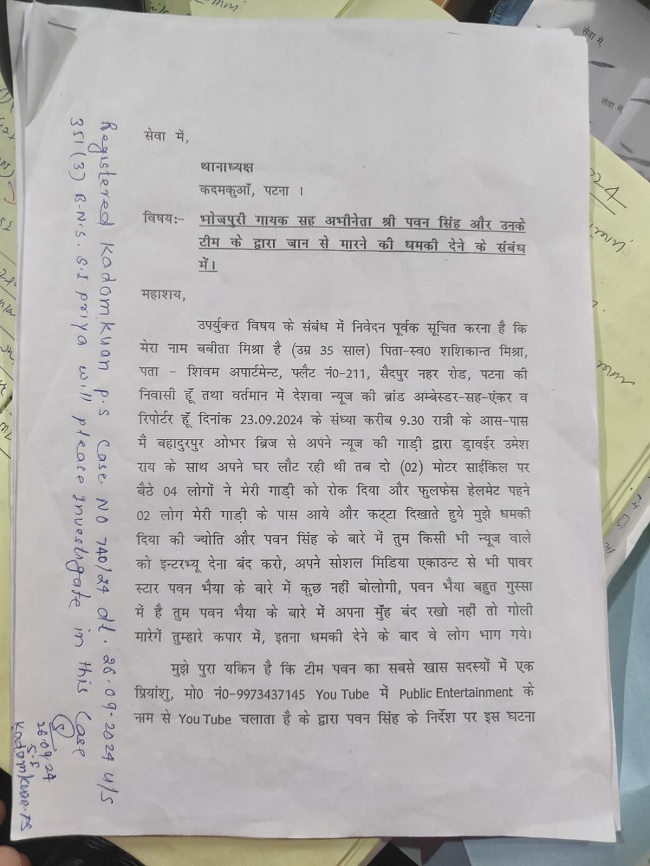 सेवा में,
थानाध्यक्ष
कदमकुआँ, पटना ।
विषयः- भोजपुरी गायक सह अभीनेता श्री पवन सिंह और उनके
टीम के द्वारा जान से मारने की धमकी देने के संबंध
में।
महाशय,
उपर्युक्त विषय के संबंध में निवेदन पूर्वक सूचित करना है कि
मेरा नाम बबीता मिश्रा है (उम्र 35 साल) पिता-स्व0 शशिकान्त मिश्रा,
पता - शिवम अपार्टमेन्ट, फ्लैट नं0-211, सैदपुर नहर रोड, पटना की
निवासी हूँ तथा वर्तमान में देशवा न्यूज की ब्रांड अम्बेस्डर-सह-एंकर व
रिपोर्टर हूँ दिनांक 23.09.2024 के संध्या करीब 9.30 रात्री के आस-पास
मैं बहादुरपुर ओभर ब्रिज से अपने न्यूज की गाड़ी द्वारा ड्रावईर उमेश
राय के साथ अपने घर लौट रही थी तब दो (02) मोटर साईकिल पर
बैठे 04 लोगों ने मेरी गाड़ी को रोक दिया और फुलफेस हेलमेट पहने
02 लोग मेरी गाड़ी के पास आये और कट्टा दिखाते हुये मुझे धमकी
दिया की ज्योति और पवन सिंह के बारे में तुम किसी भी न्यूज वाले
को इन्टरभ्यू देना बंद करो, अपने सोशल मिडिया एकाउन्ट से भी पावर
स्टार पवन भैया के बारे में कुछ नही बोलोगी, पवन भैया बहुत गुस्सा
में है तुम पवन भैया के बारे में अपना मुँह बंद रखो नही तो गोली
मारेगें तुम्हारे कपार में, इतना धमकी देने के बाद वे लोग भाग गये।
मुझे पुरा यकिन है कि टीम पवन का सबसे खास सदस्यों में एक
प्रियांशु, मो0 नं0-9973437145 You Tube में Public Entertainment के
नाम से You Tube चलाता है के द्वारा पवन सिंह के निर्देश पर इस घटना
Registered Kadamkuan p.s Case No 740/24 dt. 26-09-2024 u/s
351(3) B.N.S. S.I priya will please investigate in this Case
26.09.24
Kadamkuan PS
सेवा में,
सेवा में,